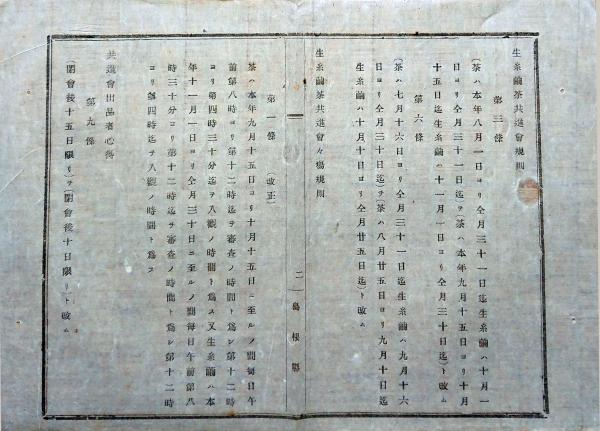 生糸繭茶共進會規則
第三條
(茶ハ本年八月一日ヨリ仝月三十一日迄生糸繭ハ十月一
日ヨリ仝月三十一日迄)ヲ(茶ハ本年九月十五日ヨリ十月
十五日迄生糸繭ハ十一月一日ヨリ仝月三十日迄ト改ム
第六條
(茶ハ七月十六日ヨリ仝月三十一日迄生糸繭ハ九月十六
日ヨリ仝月三十日迄)ヲ(茶ハ八月廿五日ヨリ九月十日迄
生糸繭ハ十月十日ヨリ仝月廿五日迄)ト改ム
生糸繭茶共進會々場規則
二
島根縣
第一條 (改正)
茶ハ本年九月十五日ヨリ十月十五日ニ至ルノ間毎日午
前第八時ヨリ第十二時迄ヲ審査ノ時間ト爲シ第十二時
ヨリ第四時三十分迄ヲ入觀ノ時間ト爲ス又生糸繭ハ本
年十一月一日ヨリ仝月三十日ニ至ルノ間毎日午前第八
時三十分ヨリ第十二時迄ヲ審査ノ時間ト爲シ第十二時
ヨリ第四時迄ヲ入觀ノ時間ト爲ス
共進會出品者心得
第九條
(閉會後十五日限リ)ヲ(閉會後十日限リ)ト改ム